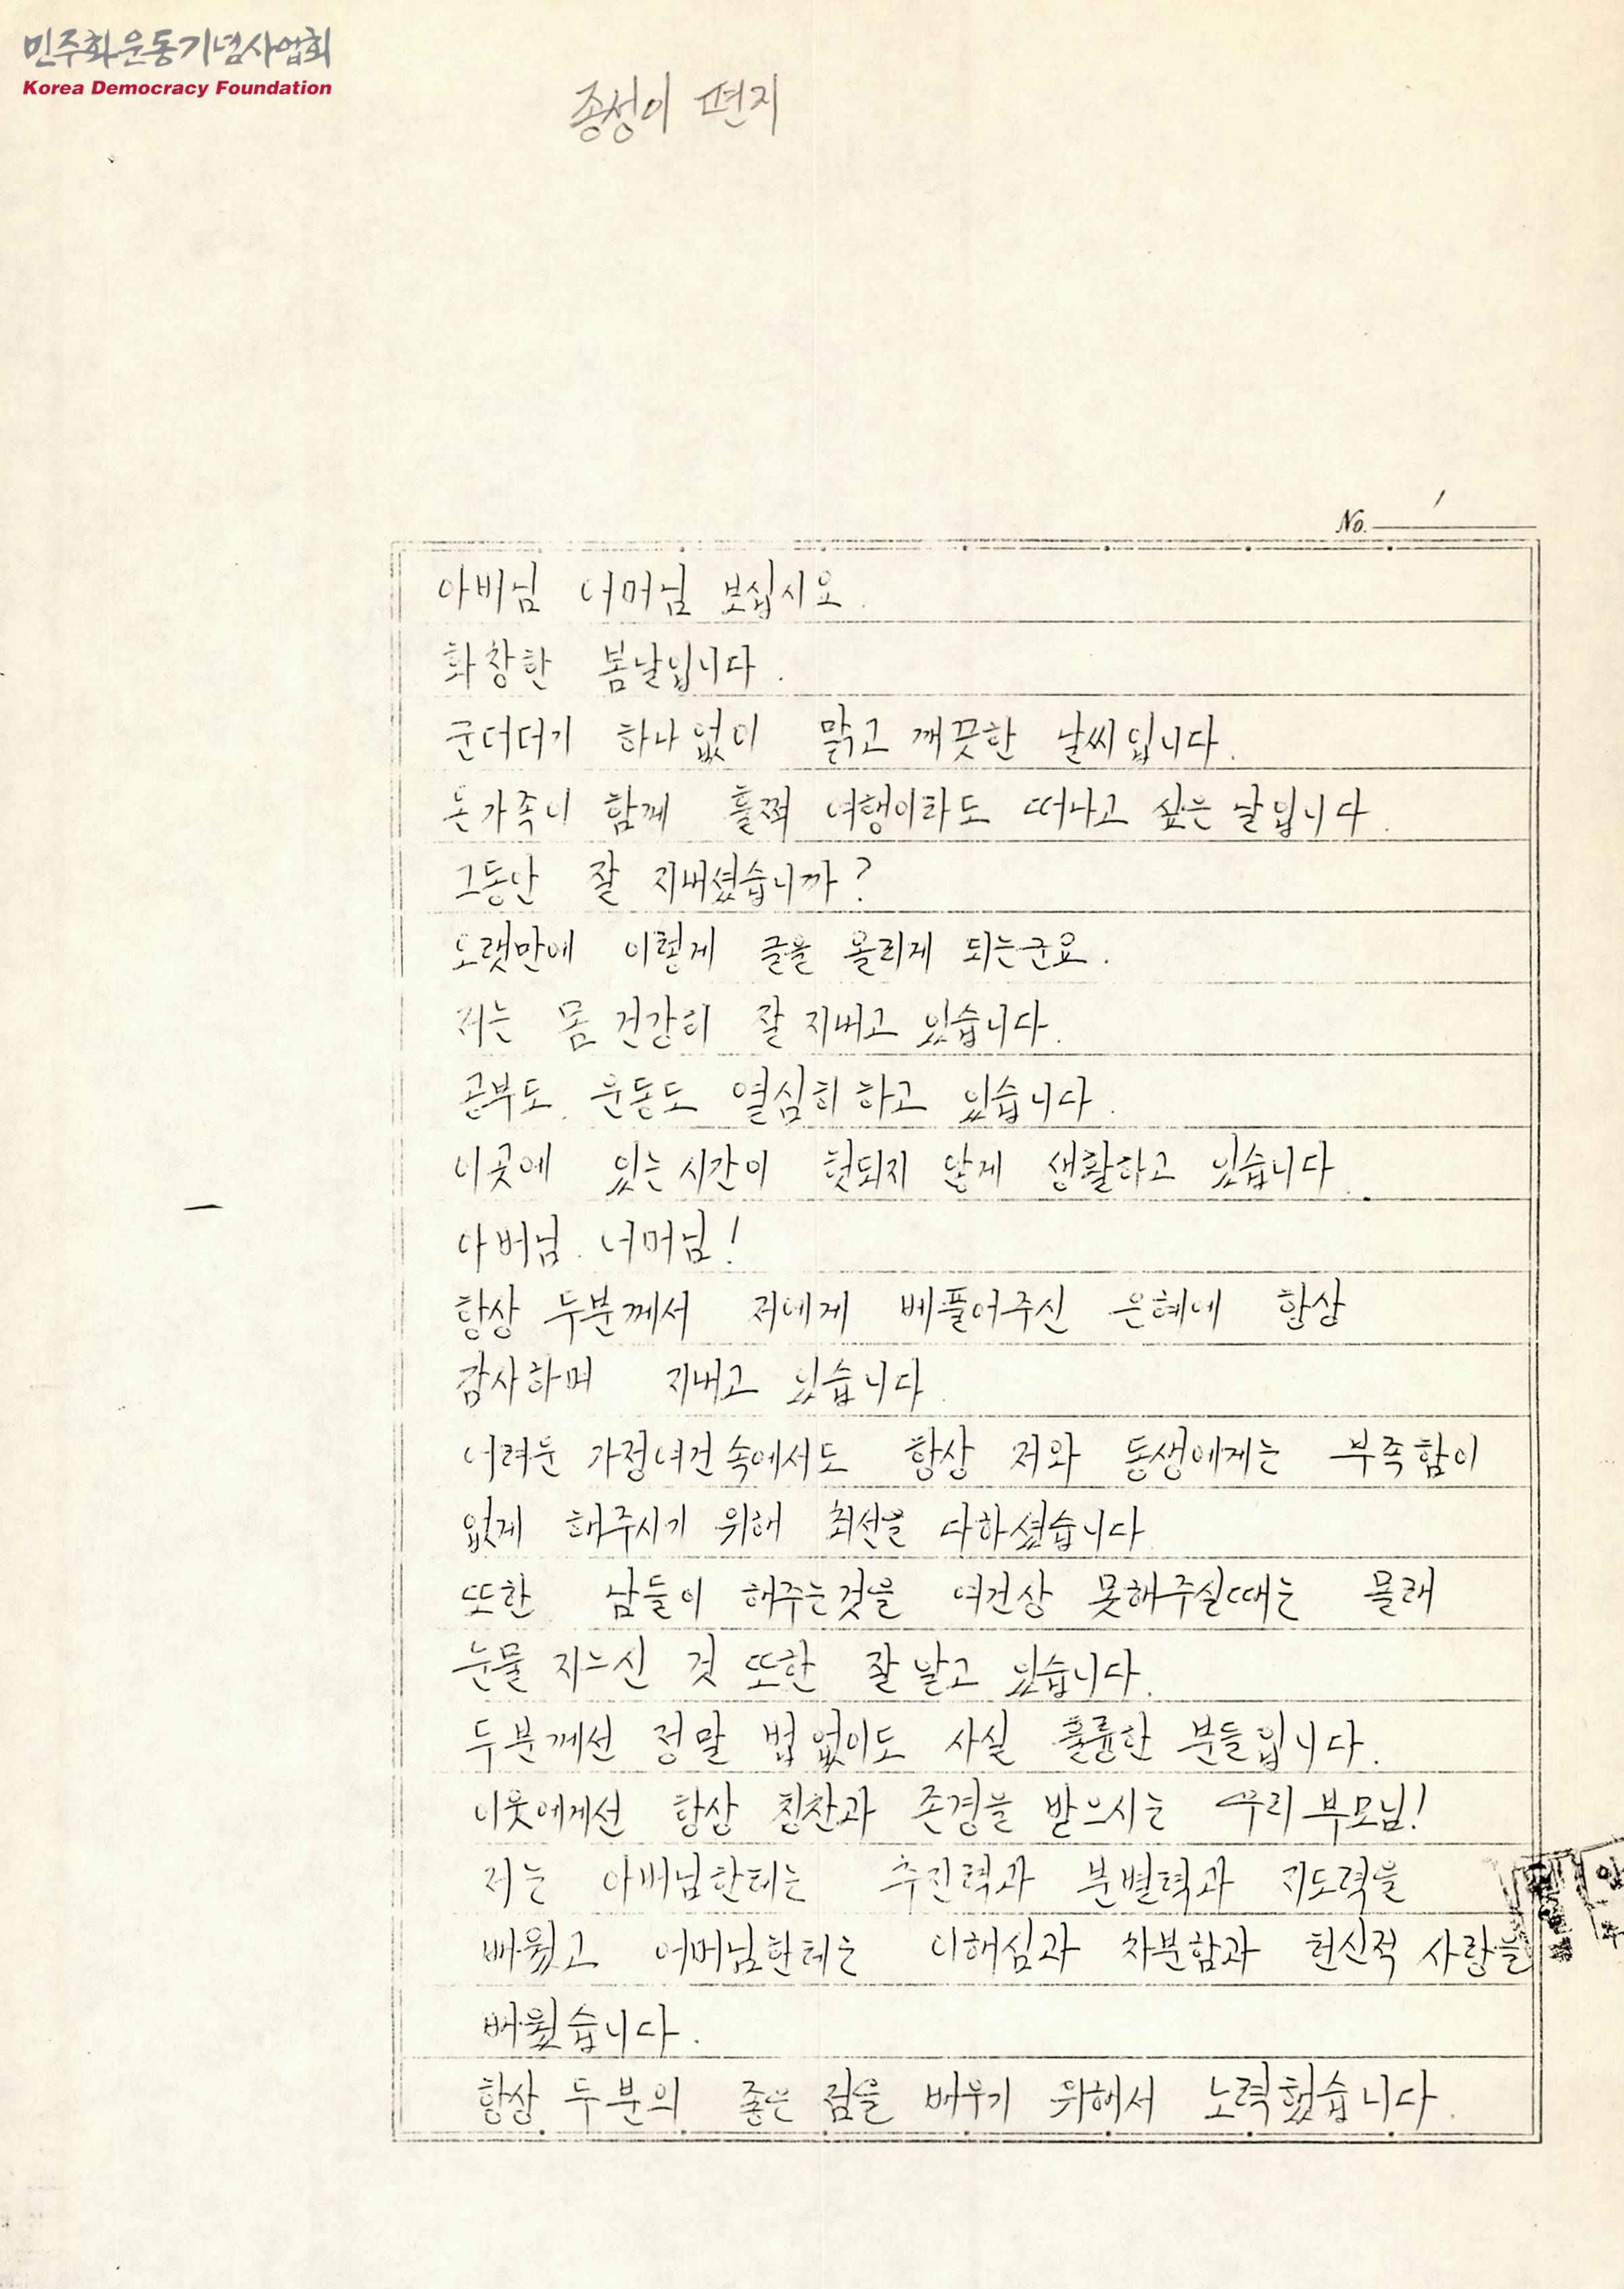 민주화운동기념사업회
Korea Democracy Foundation
종성이 편지
No. 1
아버님 어머님 보십시오.
화창한 봄날입니다.
군더더기 하나 없이 맑고 깨끗한 날씨입니다.
온가족이 함께 훌쩍 여행이라도 떠나고 싶은 날입니다.
그동안 잘 지내셨습니까?
오랫만에 이렇게 글을 올리게 되는군요.
저는 몸 건강히 잘 지내고 있습니다.
공부도. 운동도 열심히 하고 있습니다.
이곳에 있는 시간이 헛되지 않게 생활하고 있습니다.
아버님. 어머님!
항상 두분께서 저에게 베풀어주신 은혜에 항상
감사하며 지내고 있습니다.
어려운 가정여건 속에서도 항상 저와 동생에게는 부족함이
없게 해주시기 위해 최선을 다하셨습니다.
또한 남들이 해주는것을 여건상 못해주실때는 몰래
눈물 지으신 것 또한 잘 알고 있습니다.
두분께선 정말 법 없이도 사실 훌륭한 분들입니다.
이웃에게선 항상 칭찬과 존경을 받으시는 우리 부모님!
저는 아버님한테는 추진력과 분별력과 지도력을
배웠고 어머님한테는 이해심과 차분함과 헌신적 사랑을
배웠습니다.
항상 두분의 좋은 점을 배우기 위해서 노력했습니다.